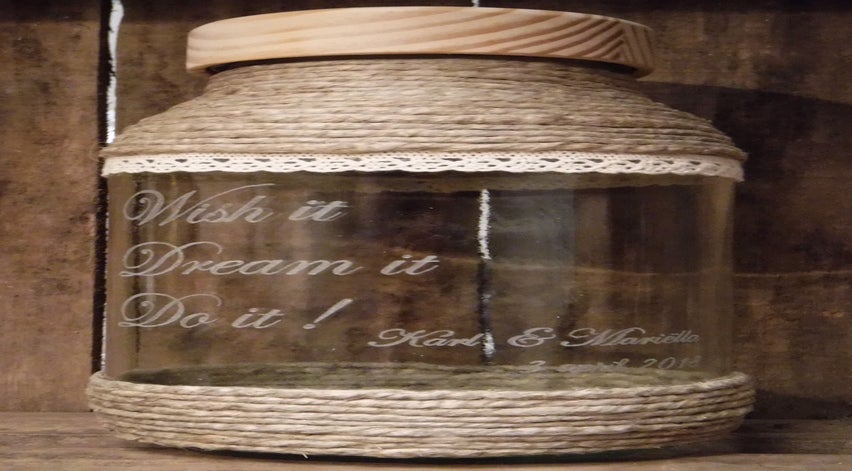 Wish it
Dream it
Do it !
Karl & Mariëlla
april